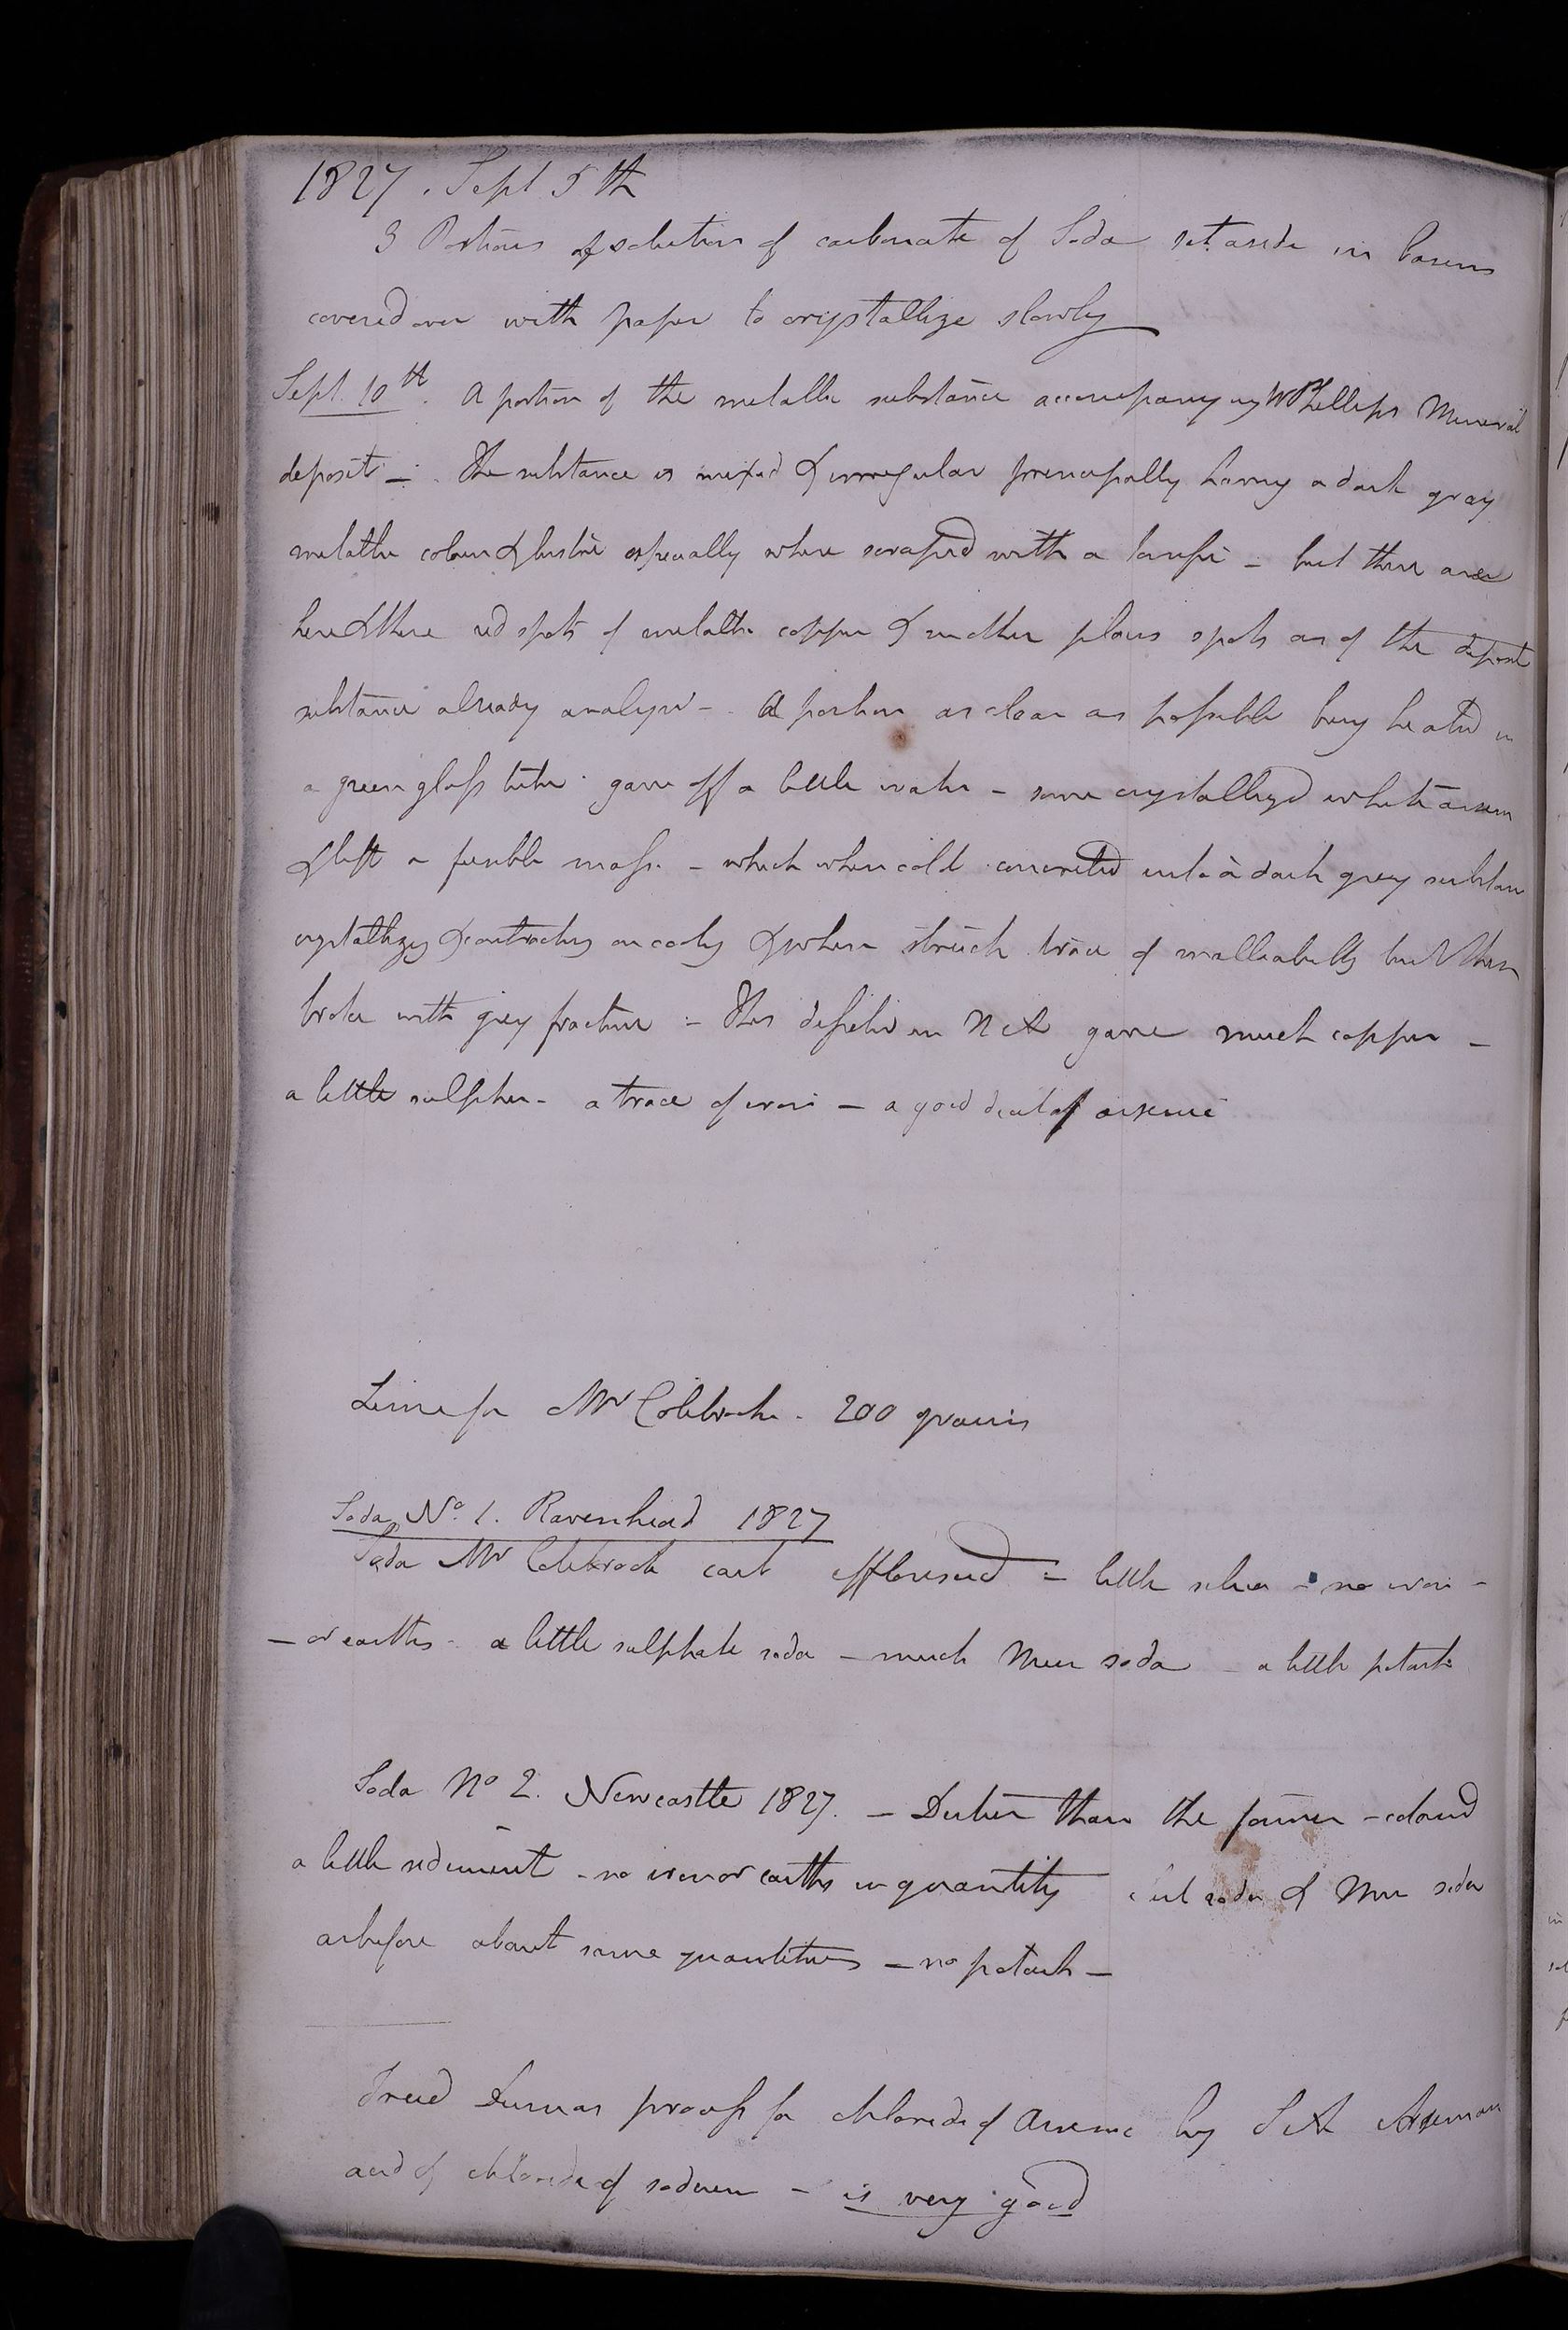 1827. Sept 5th
3 Portions of solution of carbonate of Soda set aside in basins
covered over with paper to crystallize slowly
Sept. 10th. A portion of the metallic substance accompanying W Phillips Mineral
deposit -. The substance is mixed & irregular principally having a dark gray
metallic colour & lustre especially where scraped with a knife - but there are
here & there red spots of metallic copper & in other places spots as of the deposit
substance already analysed - A portion as clean as possible being heated in
a green glass tube gave off a little water - some crystallized white arsen
& left a fusible mass - which when cold concreted into a dark grey substan
crystallizing & contracting on cooling & when struck trace of malleability but then
broke with grey fracture - This dissolved in N A gave much copper -
a little sulphur - a trace of iron - a good deal of arsenic
Lime for Mr Colebrooke. 200 grains
Soda No. 1. Ravenhead 1827
Soda Mr Colebrook effloresced - little silica - no iron -
- or earths - a little sulphate soda - much Mur soda - a little potash
Soda No 2. Newcastle 1827. - Dirtier than the former - coloured
a little sediment - no iron or earths in quantity sul soda & Mur soda
as before about same quantities - no potash -
Tried Dumas process for chloride of Arsenic by S A Arsenious
acid & chloride of sodium - is very good